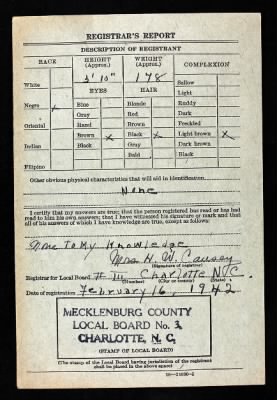 REGISTRAR'S REPORT
DESCRIPTION OF REGISTRANT
RACE HEIGHT (Approx.) WEIGHT (Approx.) COMPLEXION
3' 10" 178
White Sallow
EYES HAIR Light
Negro x Blue Blonde Ruddy
Gray Red Dark
Oriental Hazel Brown Freckled
Brown x Black x Light brown x
Indian Black Gray Dark brown
Bald Black
Filipino
Other obvious physical characteristics that will aid in identification
None
I certify that my answers are true; that the person registered has read or has had
read to him his own answers; that I have witnessed his signature or mark and that
all of his answers of which I have knowledge are true, except as follows:
None to My Knowledge
Mrs H. W. Causey
(Signature of registrar)
Registrar for Local Board # III Charlotte N.C.
(Number) (City or county) (State)
Date of registration February 16, 1942
MECKLENBURG COUNTY
LOCAL BOARD No. 3,
CHARLOTTE, N. C.
(STAMP OF LOCAL BOARD)
(The stamp of the Local Board having jurisdiction of the registrant
shall be placed in the above space.)